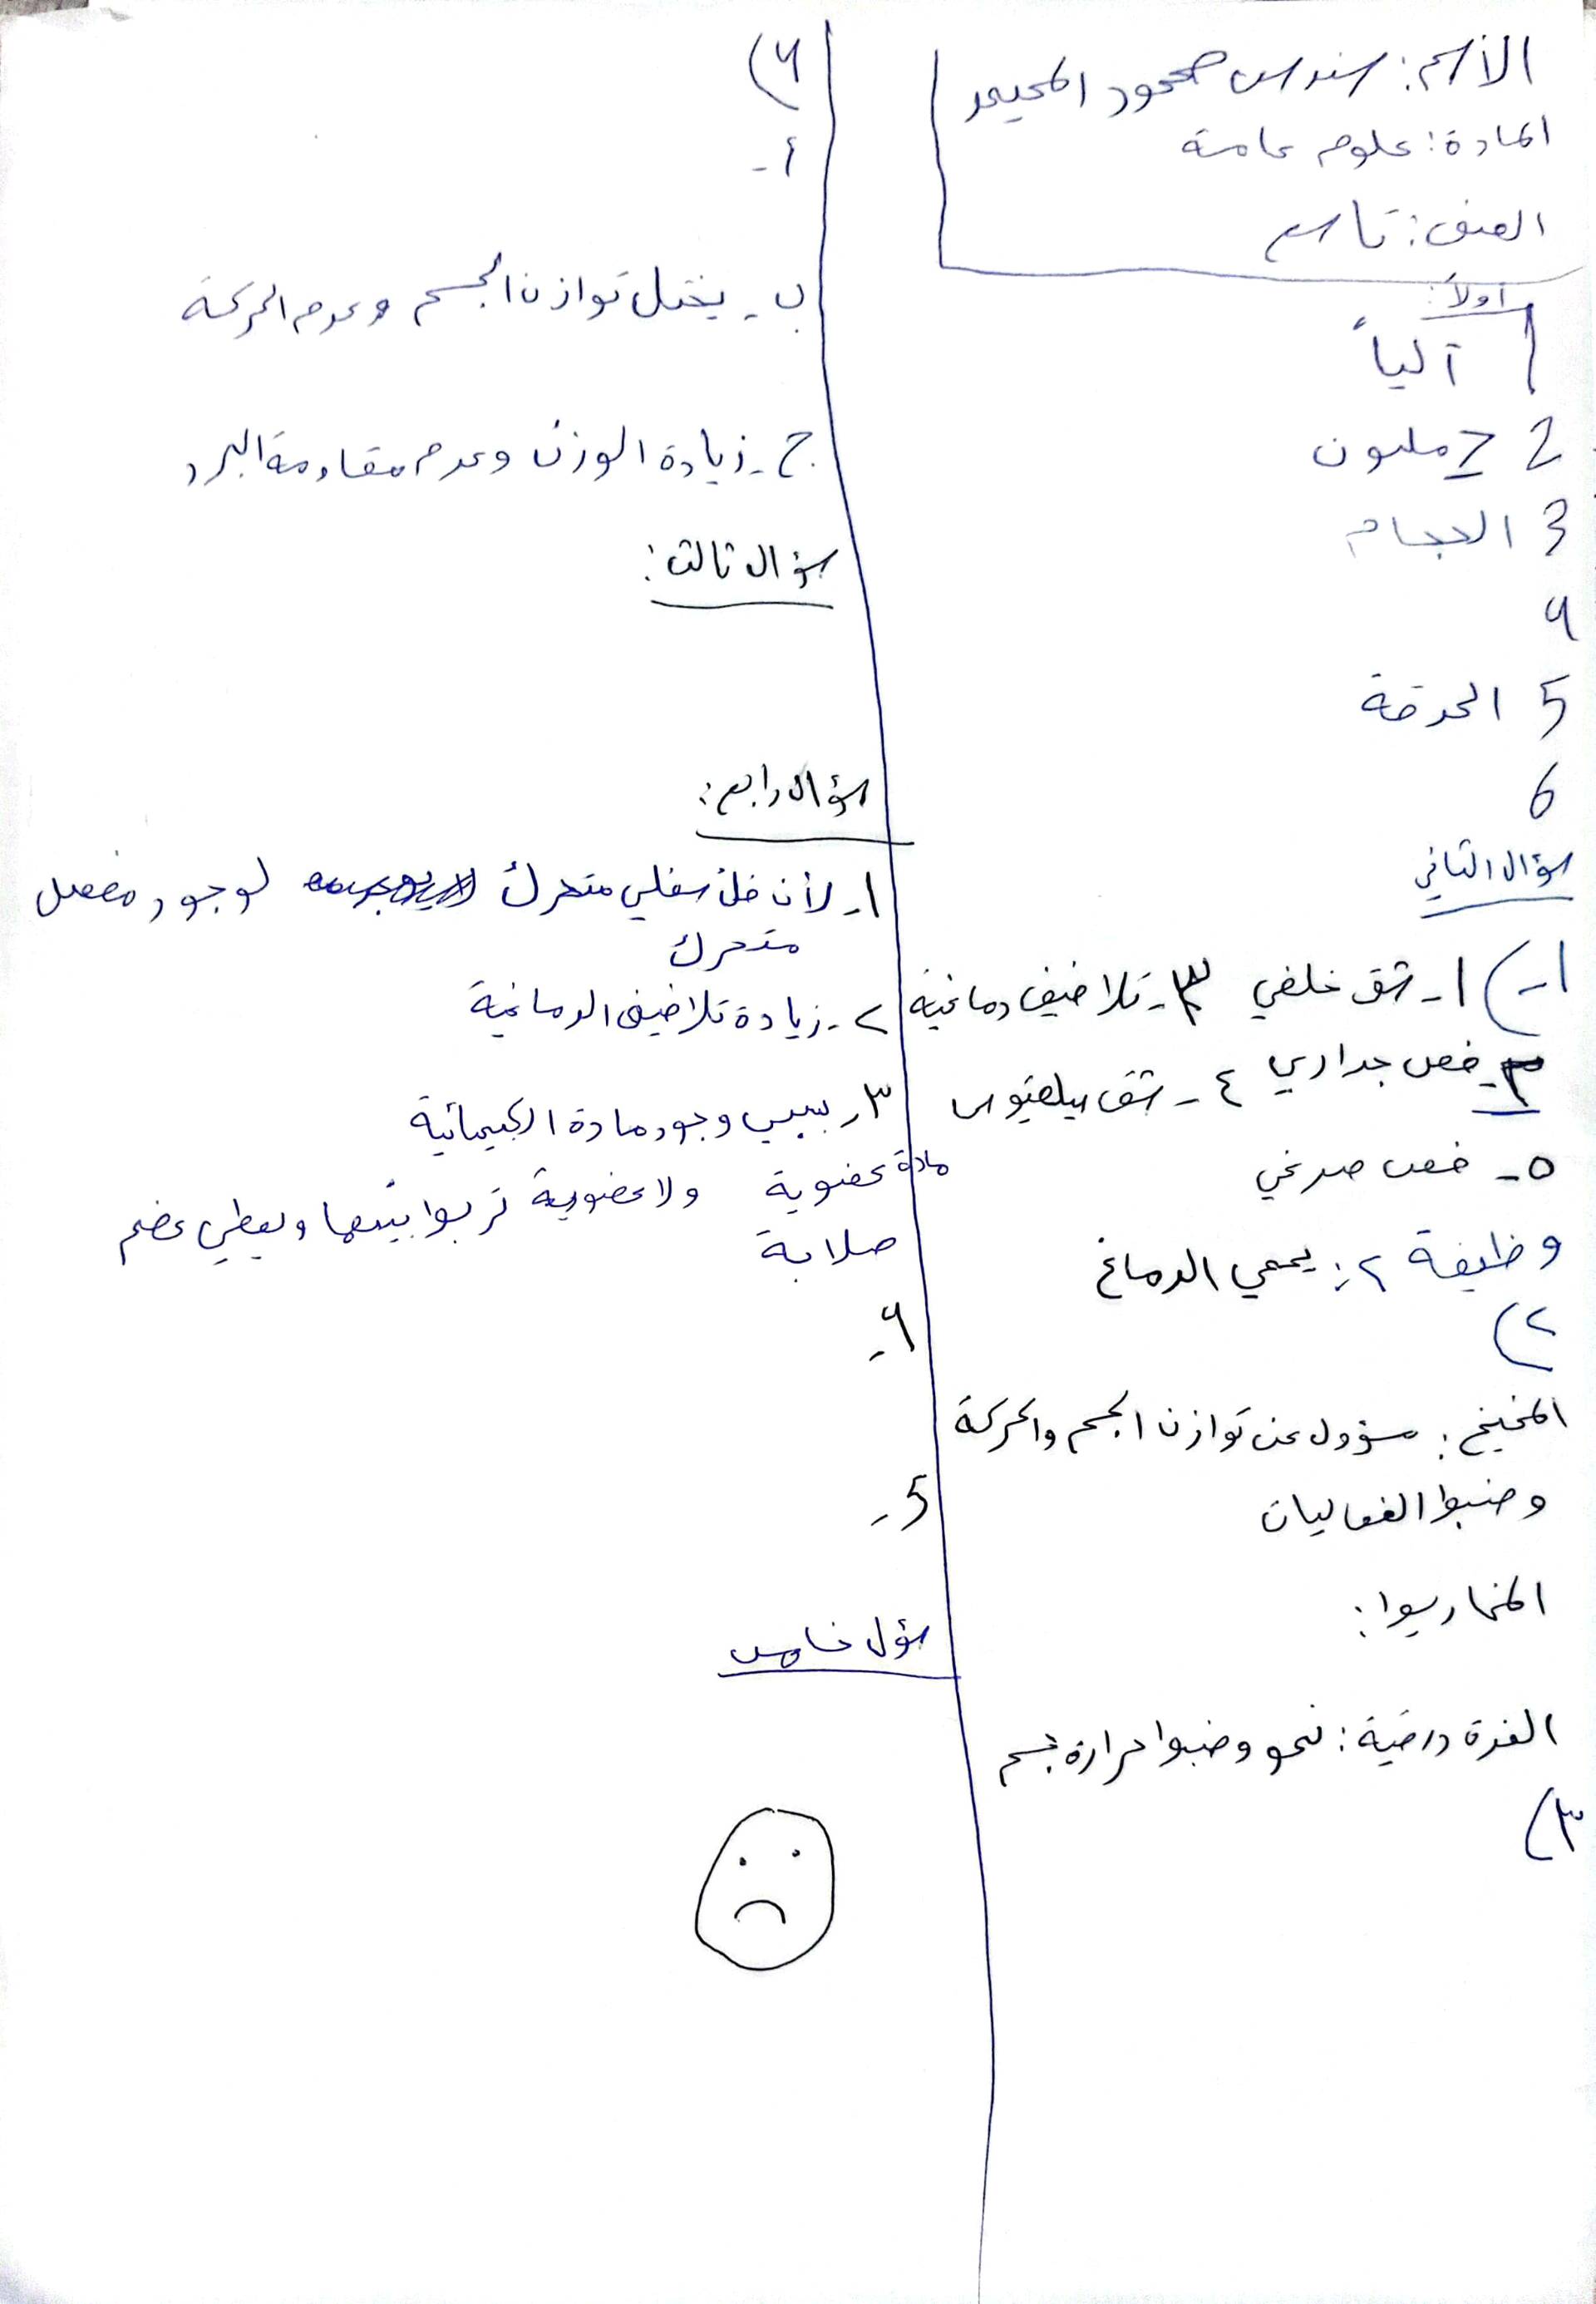 الأسم: سندس محمود المحيمد
المادة: علوم عامة
الصف: تاسع
أولاً:
1 آلياً
2 7 مليون
3 اللجام
4
5 الحدقة
6
سؤال الثاني
1-) 1- شق خلفي ٣- تلافيف دماغية
٣- فص جداري ٤- شق سيلفيوس
٥- فص صدغي
وظيفة ٢: يحمي الدماغ
٢)
المخيخ: مسؤول عن توازن الجسم والحركة
وضبط الفعاليات
المهاد ريبوا:
الغدة درقية: نمو وضبط حرارة جسم
٣)
4)
أ-
ب- يختل توازن الجسم وعدم الحركة
ج- زيادة الوزن وعدم مقاومة البرد
سؤال ثالث:
سؤال رابع:
1- لأن فك سفلي متحرك لوجود مفصل
متحرك
٢- زيادة تلافيف الدماغية
٣- بسبب وجود مادة الكيميائية
مادة عضوية ولا عضوية تربط بينهما ويعطي عضم
صلابة
4-
5-
سؤل خامس